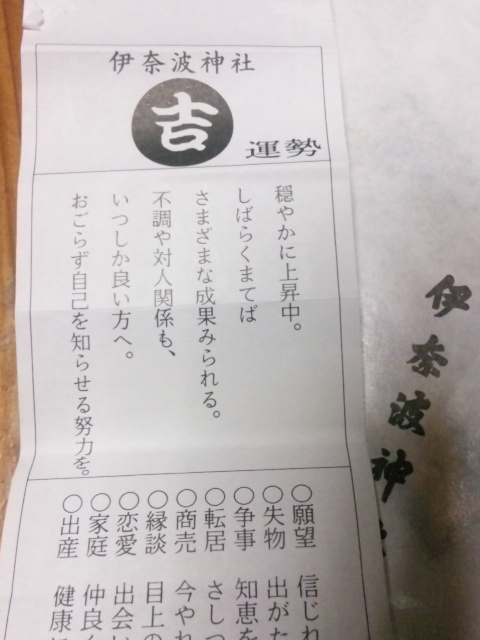 伊奈波神社
吉
運勢
穏やかに上昇中。
しばらくまてば
さまざまな成果みられる。
不調や対人関係も、
いつしか良い方へ。
おごらず自己を知らせる努力を。
○願望 信じれ
○失物 出がた
○争事 知恵を
○転居 さしつ
○商売 今やれ
○縁談 目上の
○恋愛 出会い
○家庭 仲良く
○出産 健康に
伊奈波神